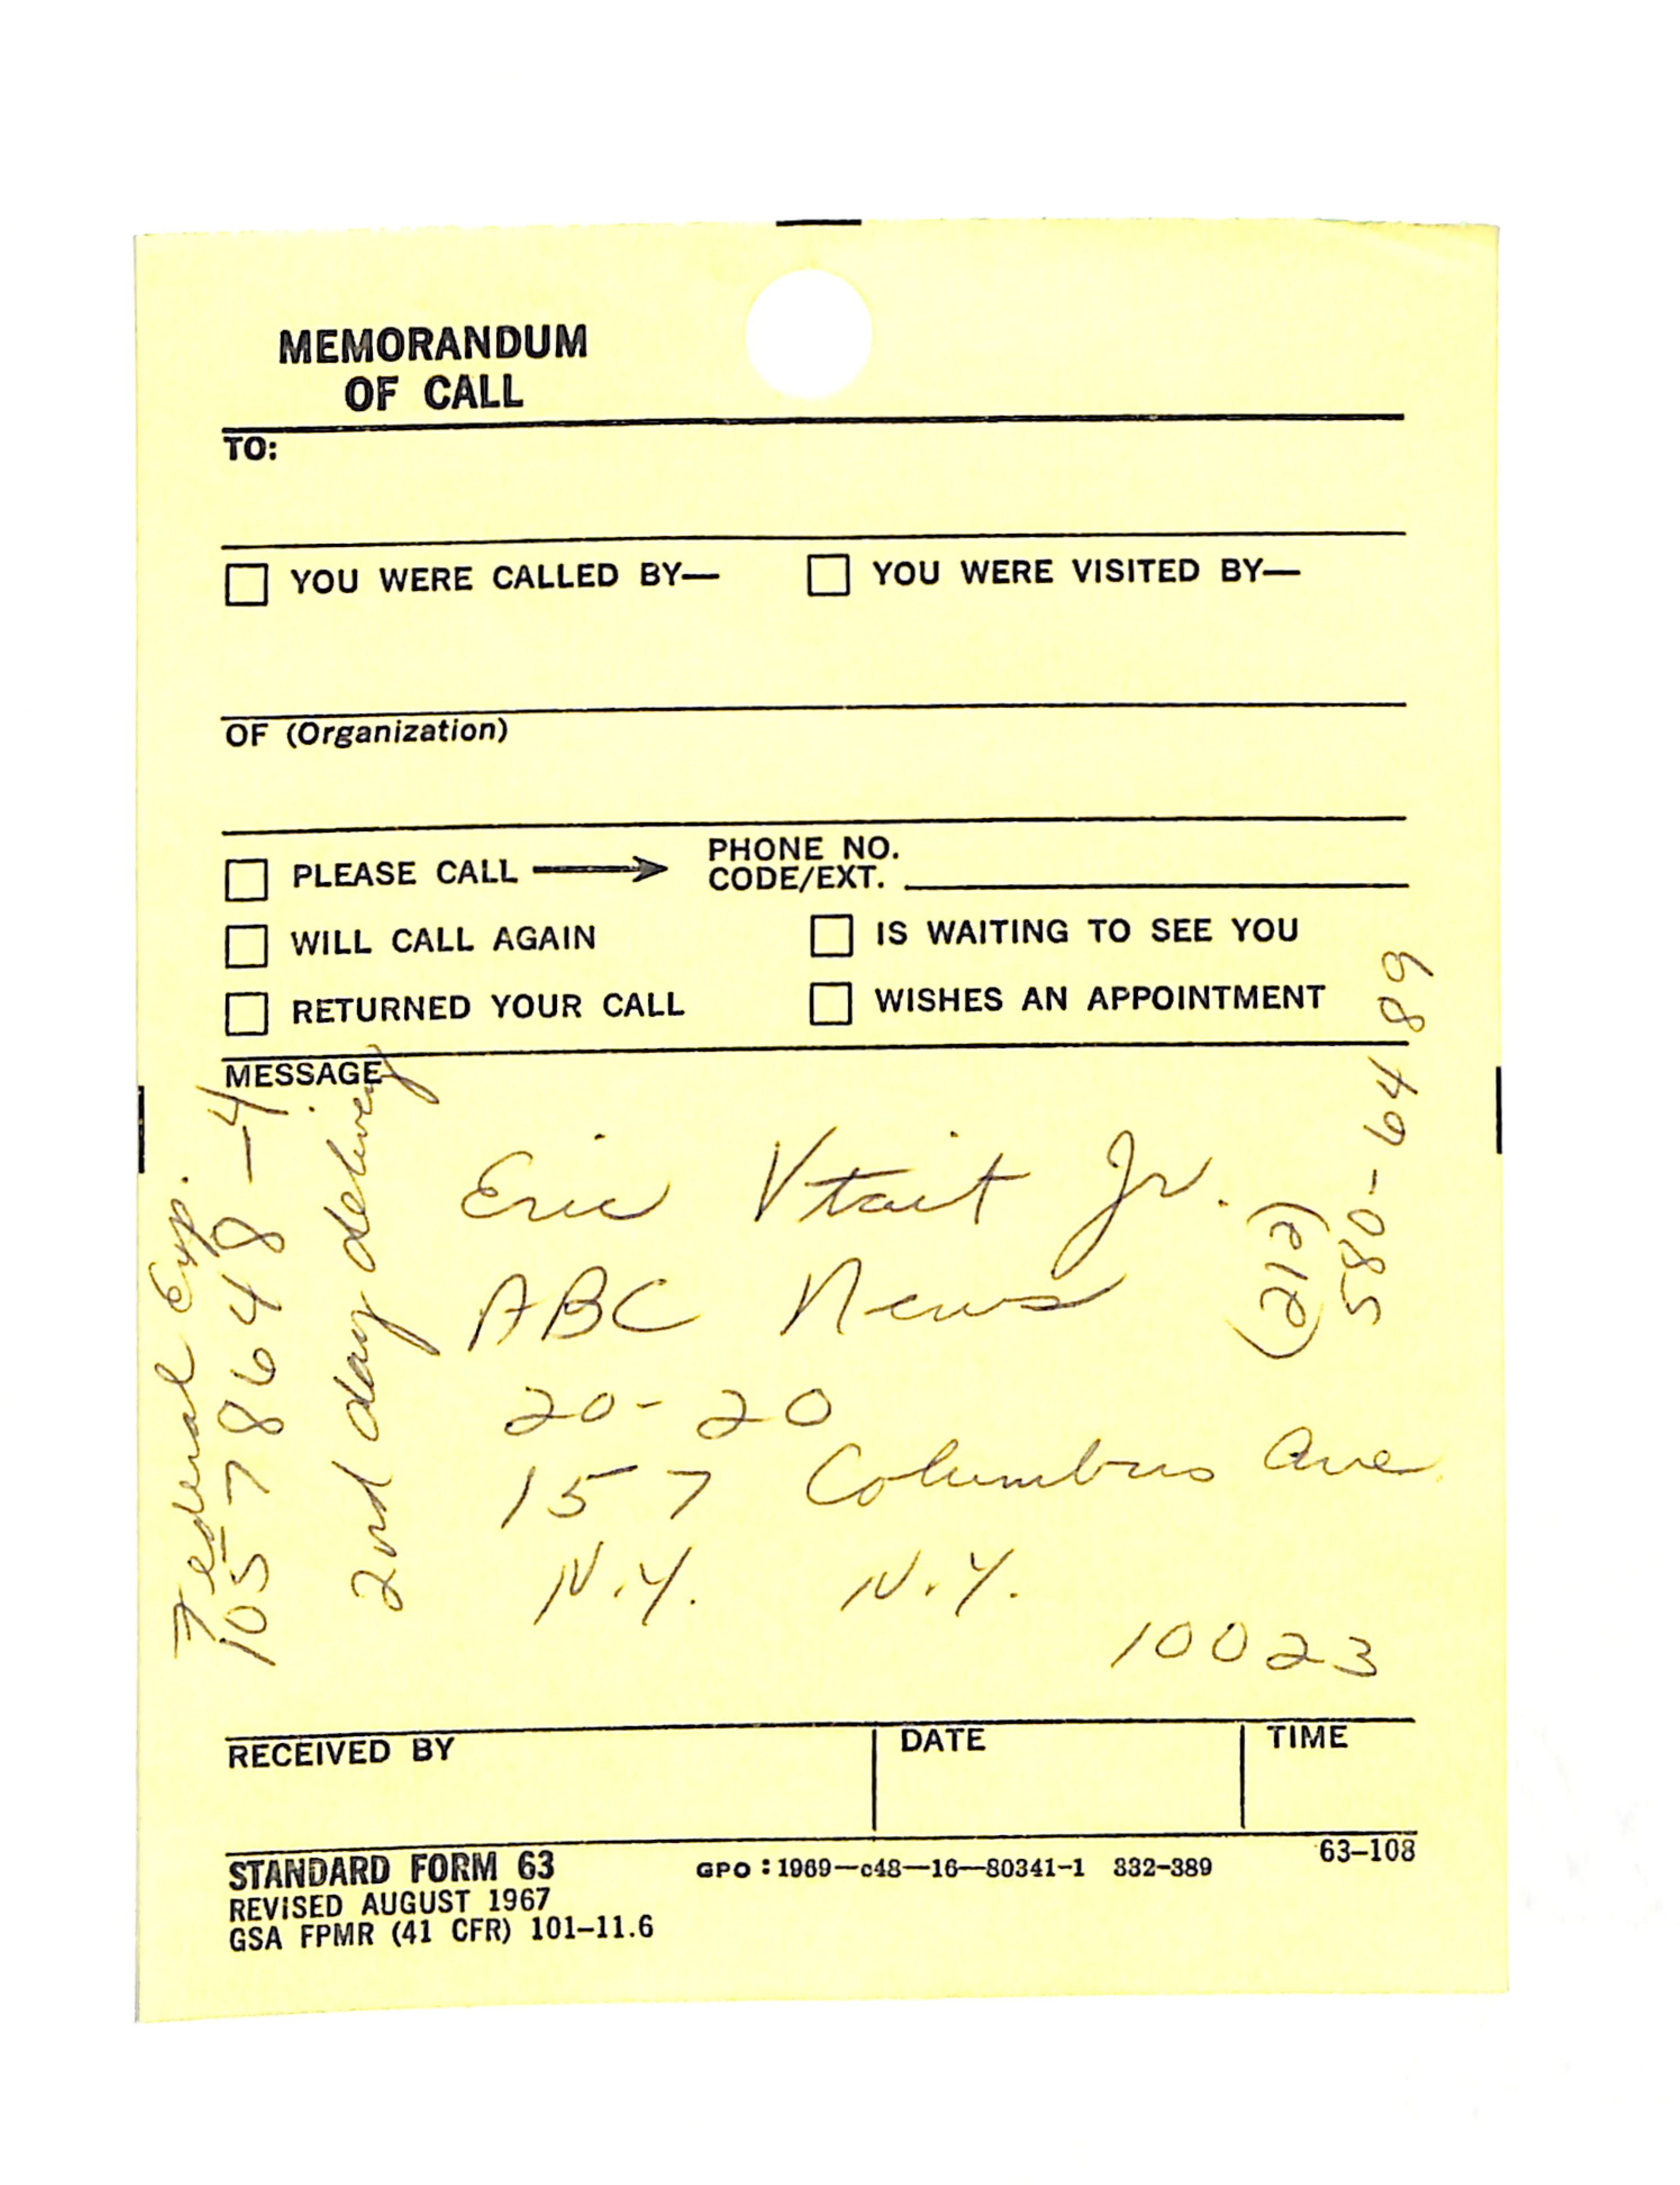 MEMORANDUM
OF CALL
TO:
YOU WERE CALLED BY— YOU WERE VISITED BY—
OF (Organization)
PLEASE CALL → PHONE NO. CODE/EXT.
WILL CALL AGAIN IS WAITING TO SEE YOU
RETURNED YOUR CALL WISHES AN APPOINTMENT
MESSAGE
Federal Exp.
105778648-4
2nd day delivery
Eric Vtait Jr.
ABC News
20-20
157 Columbus Ave
N.Y. N.Y.
10023
(212)
580-6489
RECEIVED BY DATE TIME
STANDARD FORM 63 GPO : 1969—c48—16—80341-1 332-389 63-108
REVISED AUGUST 1967
GSA FPMR (41 CFR) 101-11.6